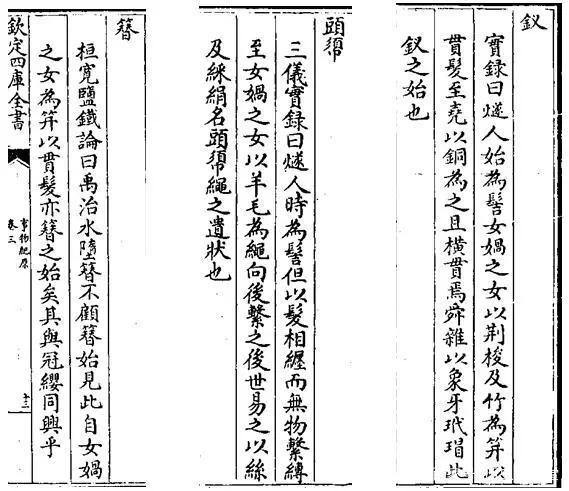 釵
實録曰燧人始為髻女媧之女以荆梭及竹為笄以
貫髮至堯以銅為之且横貫焉舜雜以象牙玳瑁此
釵之始也
頭𢄼
三儀實録曰燧人時為髻但以髮相纒而無物繫縛
至女媧之女以羊毛為繩向後繫之後世易之以絲
及綵絹名頭𢄼繩之遺狀也
簪
桓寛鹽鐵論曰禹治水墮簪不顧簪始見此自女媧
之女為笄以貫髮亦簪之始矣其與冠纓同興乎
欽定四庫全書
事物紀原
卷三
十三